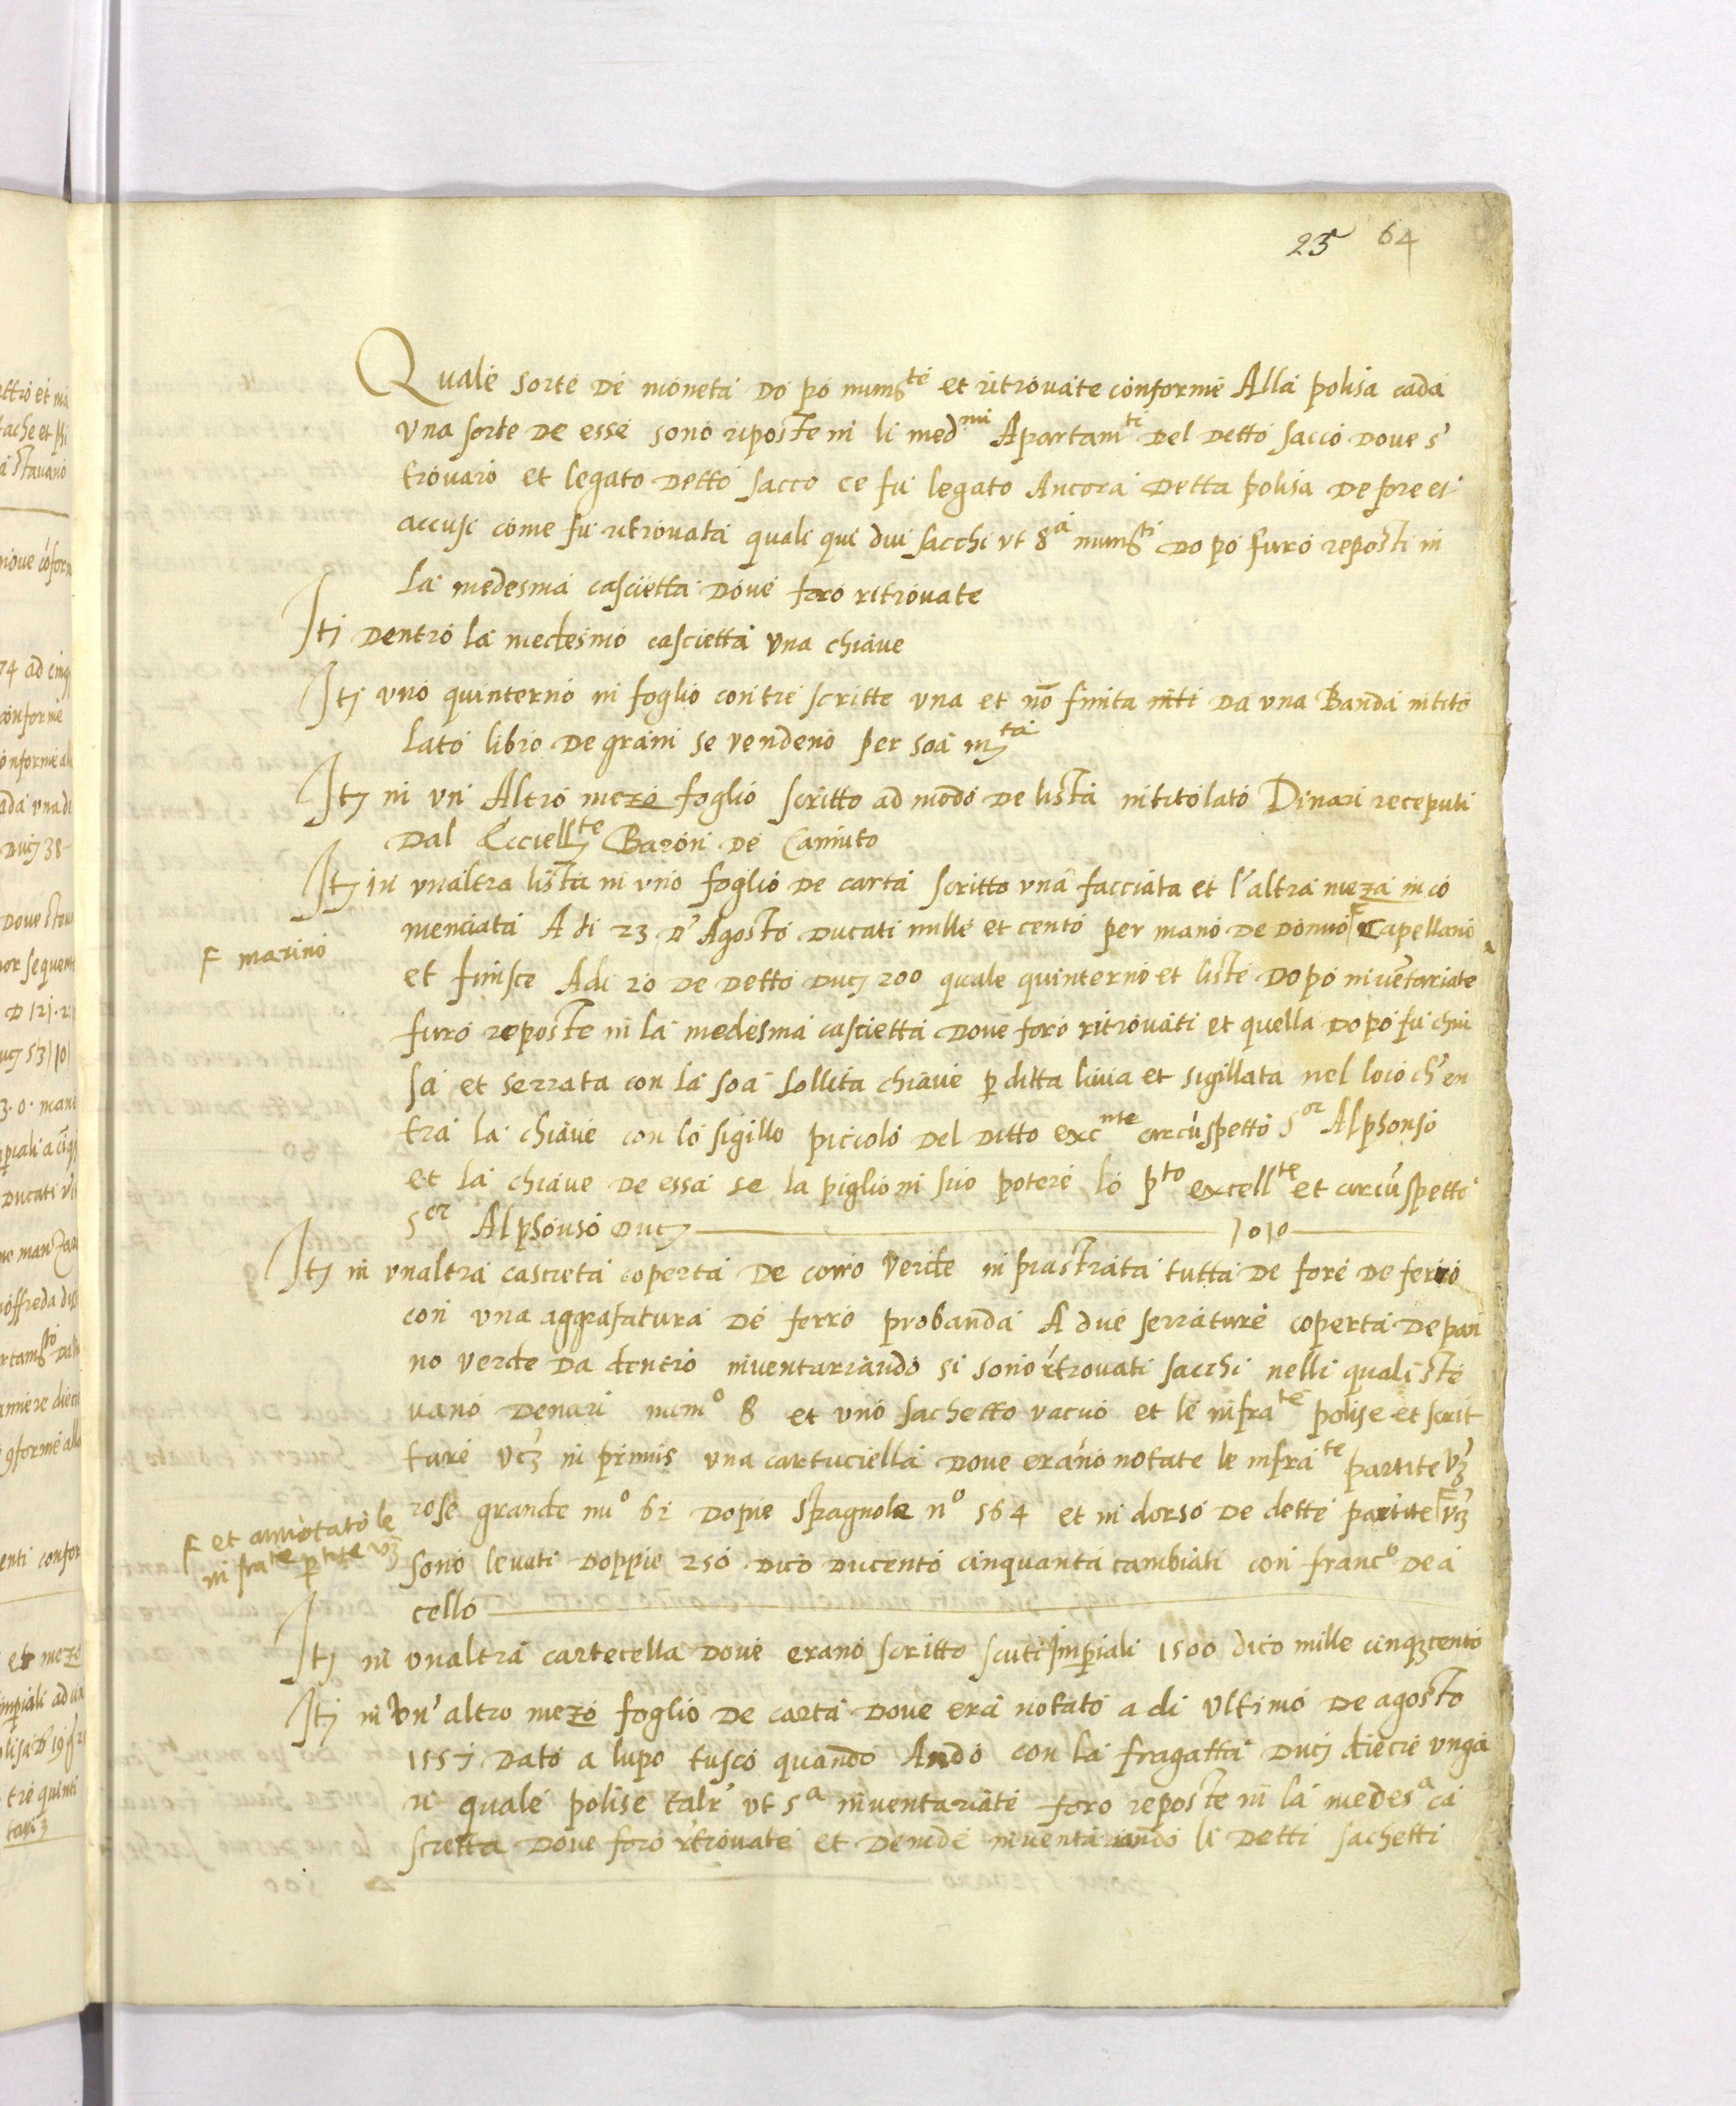 25 64
Quale sorte de moneta do po nums.te et ritrovate conforme Alla polisa cada
una sorte de esse sono riposte in li med.mi Apartam.ti del detto sacco dove s'
trovaro et legato detto sacco ce fu legato Ancora detta polisa de fore et
accusi come fu ritrovata quali qui dui sacchi ut 8.a nums.ti do po furo reposti in
la medesma cascietta dove foro ritrovate
Itj dentro la medesmo cascietta una chiave
Itj uno quinterno in foglio con tre scritte una et nō finita da una Banda intito
lato libro de grani se vendeno per soa m.tà
Itj in un Altro mezo foglio scritto ad modo de lista intitolato Dinari receputi
Dal Eccell.te Baron de
Itj in unaltra lista in uno foglio de carta scritto una facciata et l'altra meza inco
menciata A di 23 d'Agosto ducati mille et cento per mano de donno Γ Capellano
Γ marino
et finisce Adi 20 de detto ducj 200 quale quinterno et liste dopo inventariate
furo reposte in la medesma cascietta dove foro ritrovati et quella dopo fu chiu
sa et serrata con la soa sollita chiave p ditta livia et sigillata nel loco ch'en
tra la chiave con lo sigillo piccolo del ditto exc.nte circūspetto s.or Alphonso
et la chiave de essa se la piglio in suo potere lo p.to excell.te et circūspetto
s.or Alphonso ducj 1010
Itj in unaltra cascieta coperta de coiro verde inpiastrata tutta de fore de ferro
con una aggrafatura de ferro probanda A due serrature coperta de pan
no verde da dentro inventariando si sono ritrovati sacchi nelli quali ste
vano denari num.o 8 et uno sachetto vacuo et le infra.te polise et scrit
ture vcʒ in primis una cartuciella dove erano notate le infra.te partite vʒ
rose grande nu.o 62 dopie spagnole n.o 564 et in dorso de dette partite Γ vʒ
Γ et annotato le
infra.te ptite vʒ
sono levati doppie 250 dico ducento cinquanta cambiati con franc.o de a
cello
Itj in unaltra cartecella dove erano scritto scuti Impiali 1500 dico mille cinqʒcento
Itj in un' altro mezo foglio de carta dove era notato a di ultimo de agosto
1557 dato a lupo tusco quando Ando con la fragatta ducj diecie unga
ri quale polise talr' ut s.a inventariate foro reposte in la medes.a ca
scietta dove foro ritrovate et deinde inventariando li detti sachetti